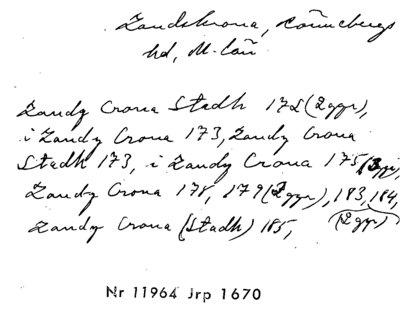 Landskrona, Rönnebergs
hd, M-län
Landz Crona Stadh 172 (2 ggr),
i Landz Crona 173, Landz Crona
Stadh 173, i Landz Crona 175 (3 ggr),
Landz Crona 178, 179 (2 ggr), 183, 184,
Landz Crona (Stadh) 185, (2 ggr)
Nr 11964 Jrp 1670